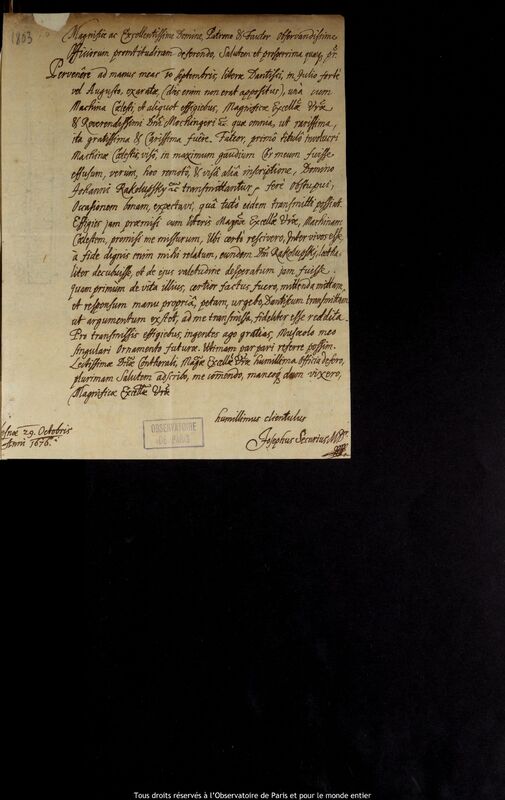 1803
Magnifice ac Excellentissime Domine, Patrone & Fautor Observandissime
Officiorum promtitudinem deferendo, Salutem et prosperrima quaeq
Pervenêre ad manus meas 10 Septembris, literae Dantisci, in Julio forte
vel Augusto, exaratae (dies enim non erat appositus), una cum
Machina Coelesti et aliquot effigiebus, Magnificae Excellae Vrae
& Reverendissimi Dni Mochingeri &c quae omnia, ut rarissima,
ita gratissima & Carissima fuêre. Fateor, primô titulô involucri
Machinae Coelestis visô, in maximum gaudium Cor meum fuisse
effusum, verum, hoc remotô, & visâ aliâ inscriptione, Domino
Johanni Rakolupsky &c transmittantur, ferè obstupui,
Occasionem bonam, expectavi, quâ tutô eidem transmitti possint.
Effigies jam praemisi cum literis Magae Excellae Vrae, Machinam
Coelestem, promisi me missurum, Ubi certô rescivero, Inter vivos esse
à fide dignis enim mihi relatum, eundem Dn Rakolupsky, lethaliter
decubuisse, et de ejus valetudine desperatum jam fuisse.
quam primum de vita illius, certior factus fuero, mittenda mittam,
et responsum manu propriâ, petam, urgebo, Dantiscum transmittam
ut argumentum exstet, ad me transmissa, fideliter esse reddita.
Pro transmissis effigiebus, ingentes ago gratias, Musaeolo meo
singulari Ornamento futurae. Utinam par pari referre possim.
Lectissimae Dnae Conthorali, Magae Excellae Vrae humillima Officia defero,
plurimam Salutem adscribo, me comendo, maneoq dum vixero,
Magnificae Excellae Vrae
humillimus clientulus
29. Octobris
Anni 1676.
Josephus Securius, MDr
OBSERVATOIRE
DE PARIS
Tous droits réservés à l'Observatoire de Paris et pour le monde entier